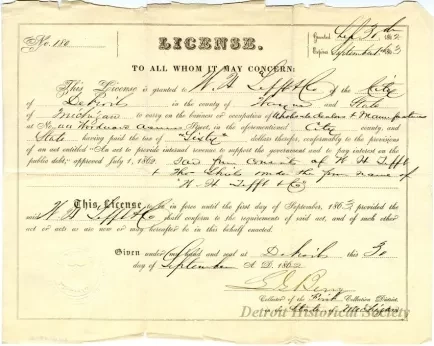 No. 180
LICENSE.
Granted Sep 30th 1862
Expires September 1st 1863
TO ALL WHOM IT MAY CONCERN:
This License is granted to W. H. Tefft & Co. of the City
of Detroit in the county of Wayne and State
of Michigan to carry on the business or occupation of Wholesale dealers & Manufacturers
at No. Woodward Avenue Street, in the aforementioned City county, and
State having paid the tax of Sixty dollars therefor, conformably to the provisions
of an act entitled "An act to provide internal revenue to support the government and to pay interest on the
public debt," approved July 1, 1862. Said firm consists of W H Tefft
& under the firm name of
"W. H. Tefft & Co"
This License to be in force until the first day of September, 1863 provided the
said W H Tefft & Co shall conform to the requirements of said act, and of such other
act or acts as are now or may hereafter be in this behalf enacted.
Given under my hand and seal at Detroit this 30
day of September A. D. 1862
Collector of the First Collection District,
of the State of Michigan
Detroit Historical Society